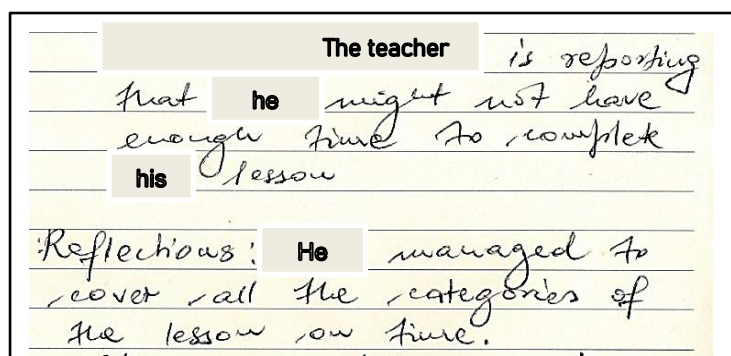 The teacher is reporting
that he might not have
enough time to complete
his lesson
Reflections: He managed to
cover all the categories of
the lesson on time.